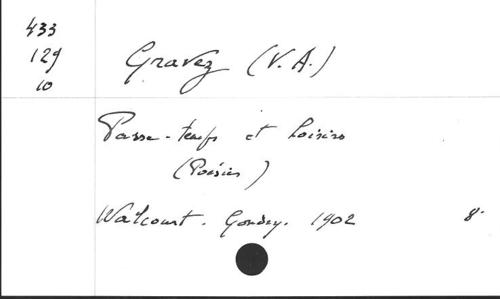 433
129
10
Gravez (V. A.)
Passe-temps et Loisirs
(Poésies)
Walcourt. Gondry. 1902 8°